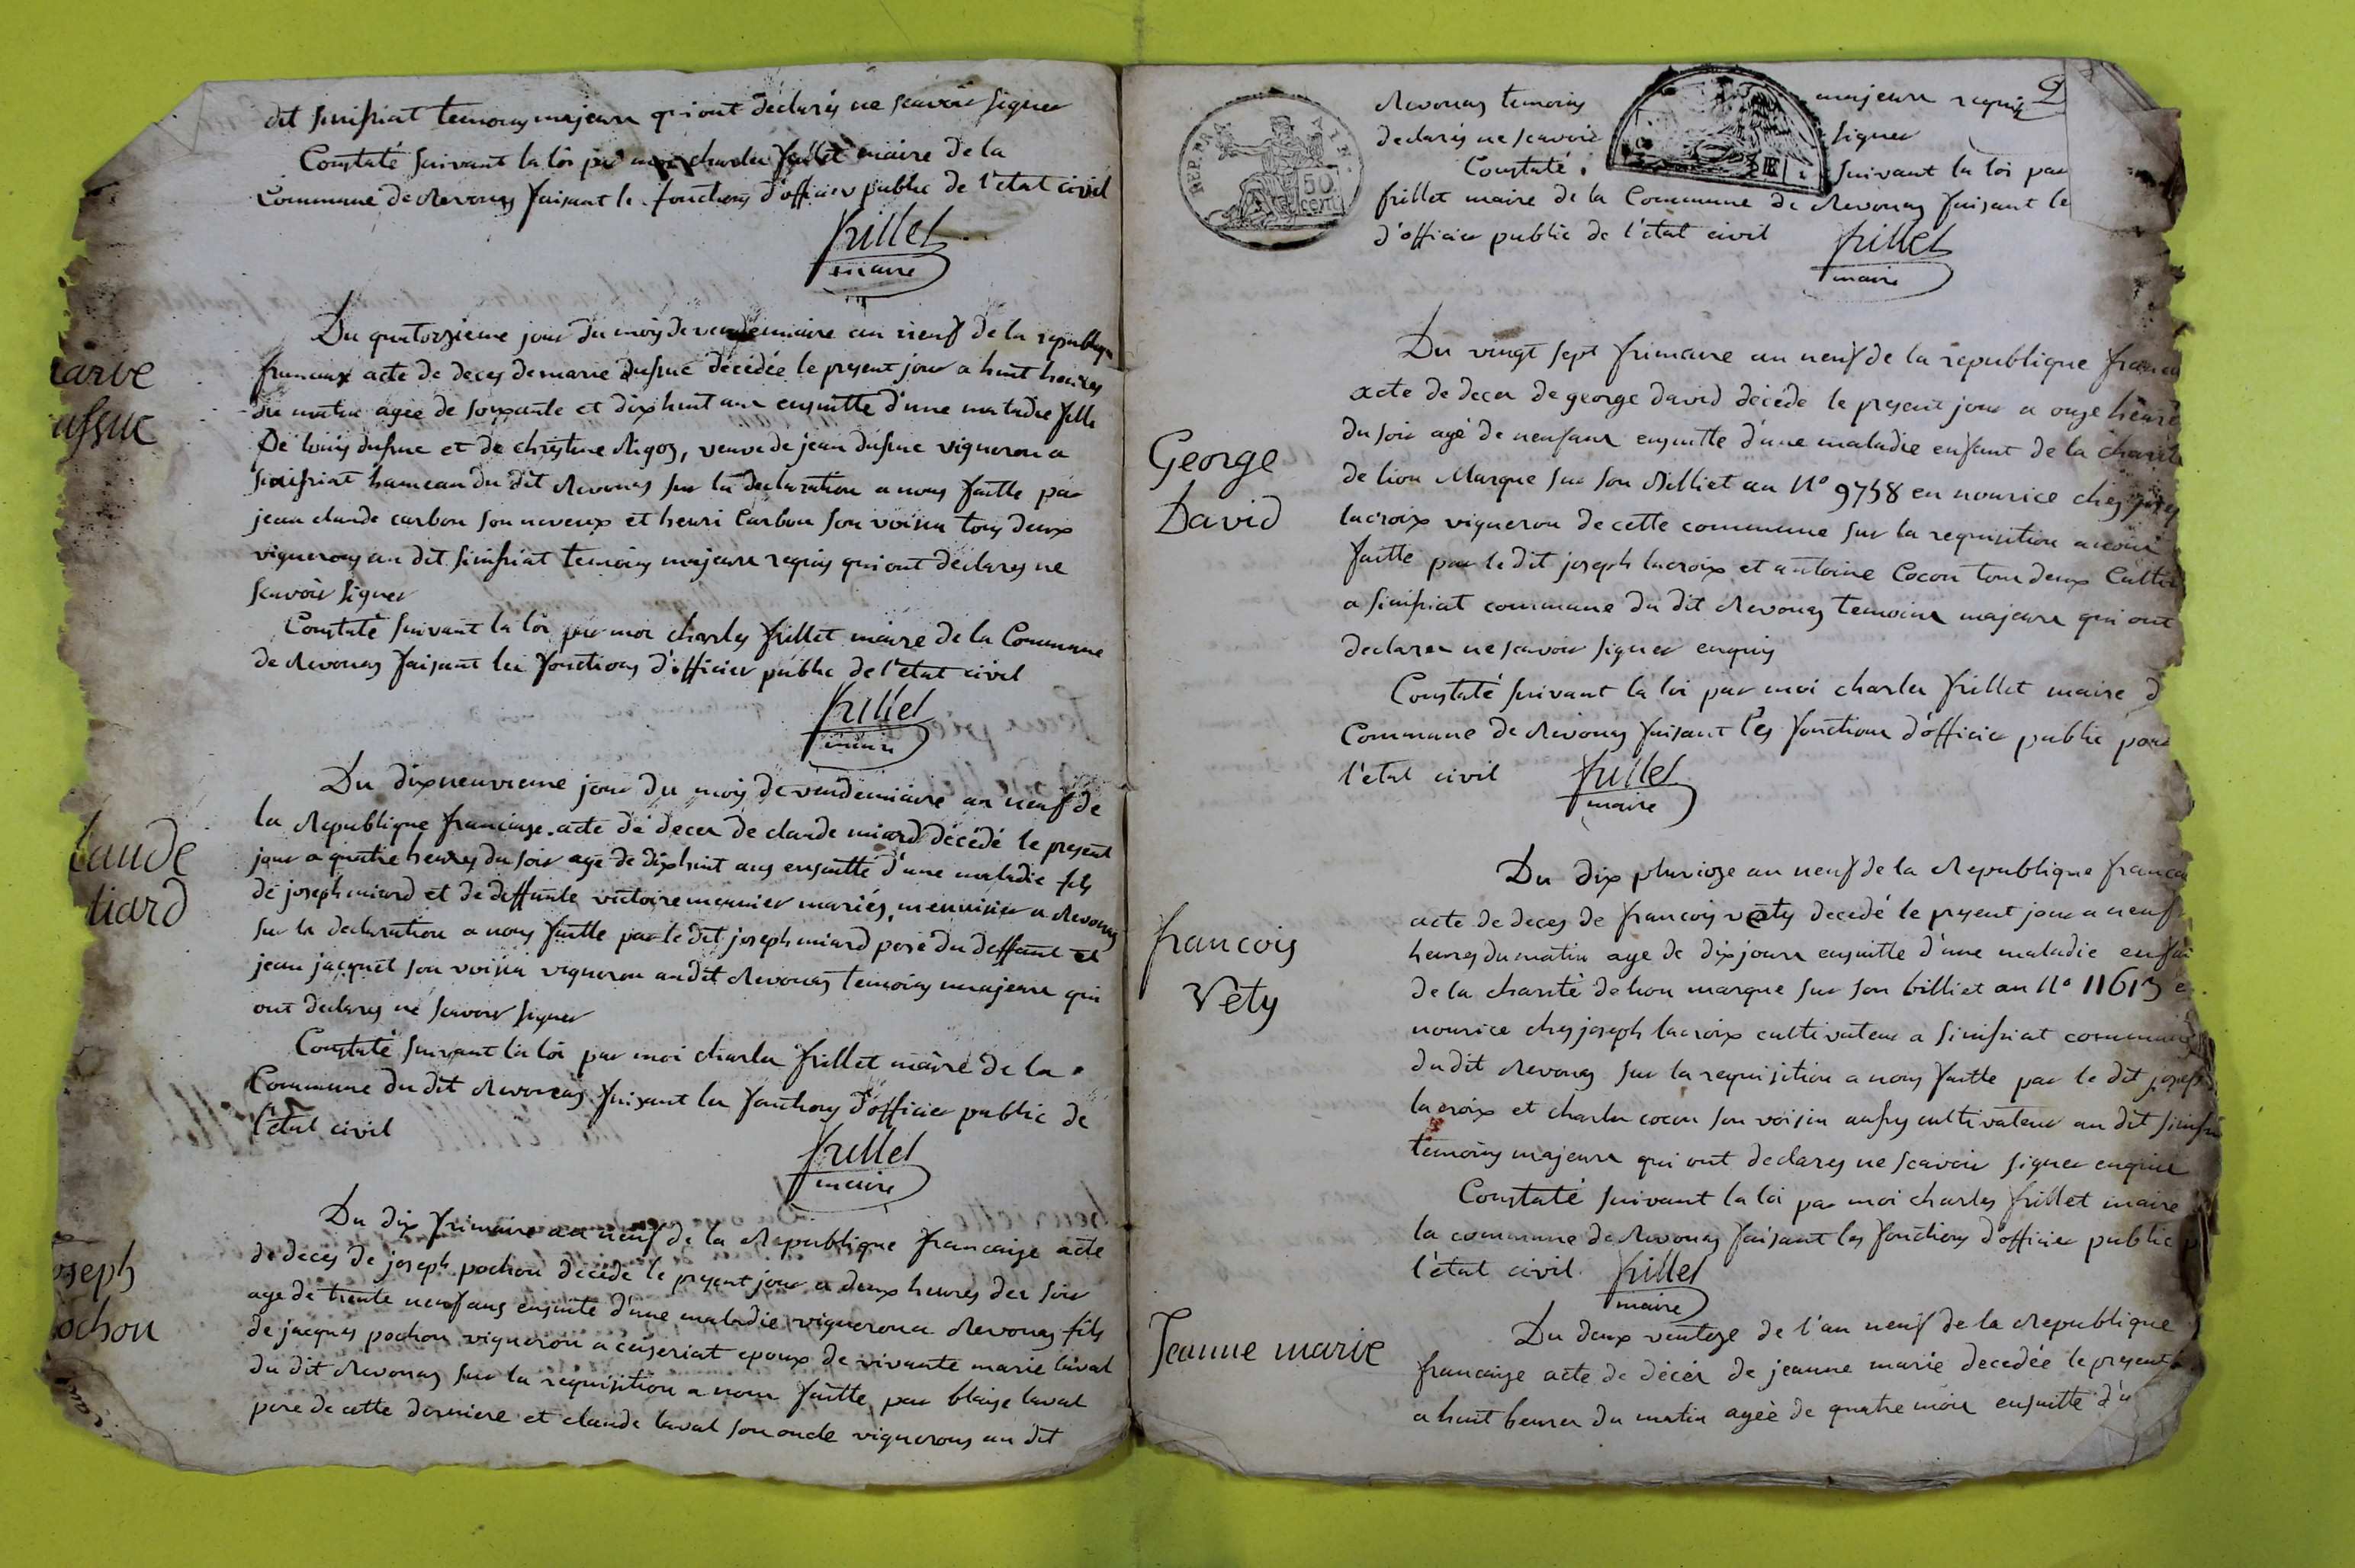 dit simissiat temoins majeurs qui ont declarés ne scavoir signer
Constaté suivant la loi par moi charles frillet maire de la
Commune de Revonas faisant les fonctions d'officier public de l'etat civil
frillet
maire
arie
ussuc
Du quatorzieme jour du mois de vendemiaire an neuf de la republique
francaise acte de deces de marie dussuc décédée le present jour a huit heures
du matin agée de soixante et dix huit ans ensuitte d'une maladie fille
De louis dussuc et de christine Rigos, veuve de jean dussuc vigneron a
simissiat hameau du dit Revonas sur la declaration a nous faitte par
jean claude carbon son neveux et henri Carbon son voisin tous deux
vignerons au dit simissiat temoins majeurs requis qui ont déclarés ne
scavoir signer
Constaté suivant la loi par moi charles frillet maire de la Commune
de Revonas faisant les fonctions d'officier public de l'etat civil
frillet
maire
laude
iard
Du dixneuvieme jour du mois de vendemiaire an neuf de
la Republique francaise. acte de deces de claude miard décédé le present
jour a quatre heures du soir agé de dixhuit ans ensuitte d'une maladie fils
de joseph miard et de deffunte victoire meunier mariés, menuisier a Revonas
sur la declaration a nous faitte par le dit joseph miard pere du deffunt et
jean jacquet son voisin vigneron audit Revonas temoins majeurs qui
ont declares ne scavoir signer
Constaté suivant la loi par moi charles frillet maire de la
Commune du dit Revonas faisant les fonctions d'officier public de
l'etat civil
frillet
maire
oseph
ochon
Du dix frimaire an neuf de la Republique francaise acte
de deces de joseph pochon décédé le present jour a deux heures du soir
age de trente neuf ans ensuite d'une maladie vigneron a Revonas fils
de jacques pochon vigneron a ceyseriat epoux de vivante marie laval
du dit Revonas sur la requisition a nous faitte par blaise laval
pere de cette derniere et claude laval son oncle vignerons au dit
2
Revonas temoins majeurs requis
declarés ne scavoir signer
Constaté suivant la loi par
frillet maire de la Commune de Revonas faisant le
d'officier public de l'état civil
REP. FRA
50
cent
frillet
maire
George
David
Du vingt sept frimaire an neuf de la republique
acte de deces de george david décédé le present jour a onze heures
du soir agé de neuf ans ensuitte d'une maladie enfant de la charité
de lion Marque sur son Billiet au N° 9758 en nourice chez
lacroix vigneron de cette commune sur la requisition a nous
faitte par le dit joseph lacroix et antoine Cocon tous deux
a simissiat commune du dit Revonas temoins majeurs qui ont
declares ne scavoir signer enquis
Constaté suivant la loi par moi charles frillet maire d
Commune de Revonas faisant les fonctions d'officier public pour
l'etat civil
frillet
maire
francois
Vety
Du dix pluvioze an neuf de la Republique
acte de deces de francois vety decedé le present jour a neuf
heures du matin age de dix jours ensuitte d'une maladie
de la charité de lion marque sur son billiet au N° 11613
nourice chez joseph lacroix cultivateur a simissiat commune
du dit Revonas sur la requisition a nous faitte par le dit joseph
lacroix et charles cocon son voisin aussy cultivateur au dit
temoins majeurs qui ont declares ne scavoir signer enquis
Constaté suivant la loi par moi charles frillet maire
la commune de Revonas faisant les fonctions d'officier public
l'état civil
frillet
maire
Jeanne marie
Du deux ventoze de l'an neuf de la Republique
francaise acte de décés de jeanne marie decedée le present
a huit heures du matin ageé de quatre mois ensuitte d'u